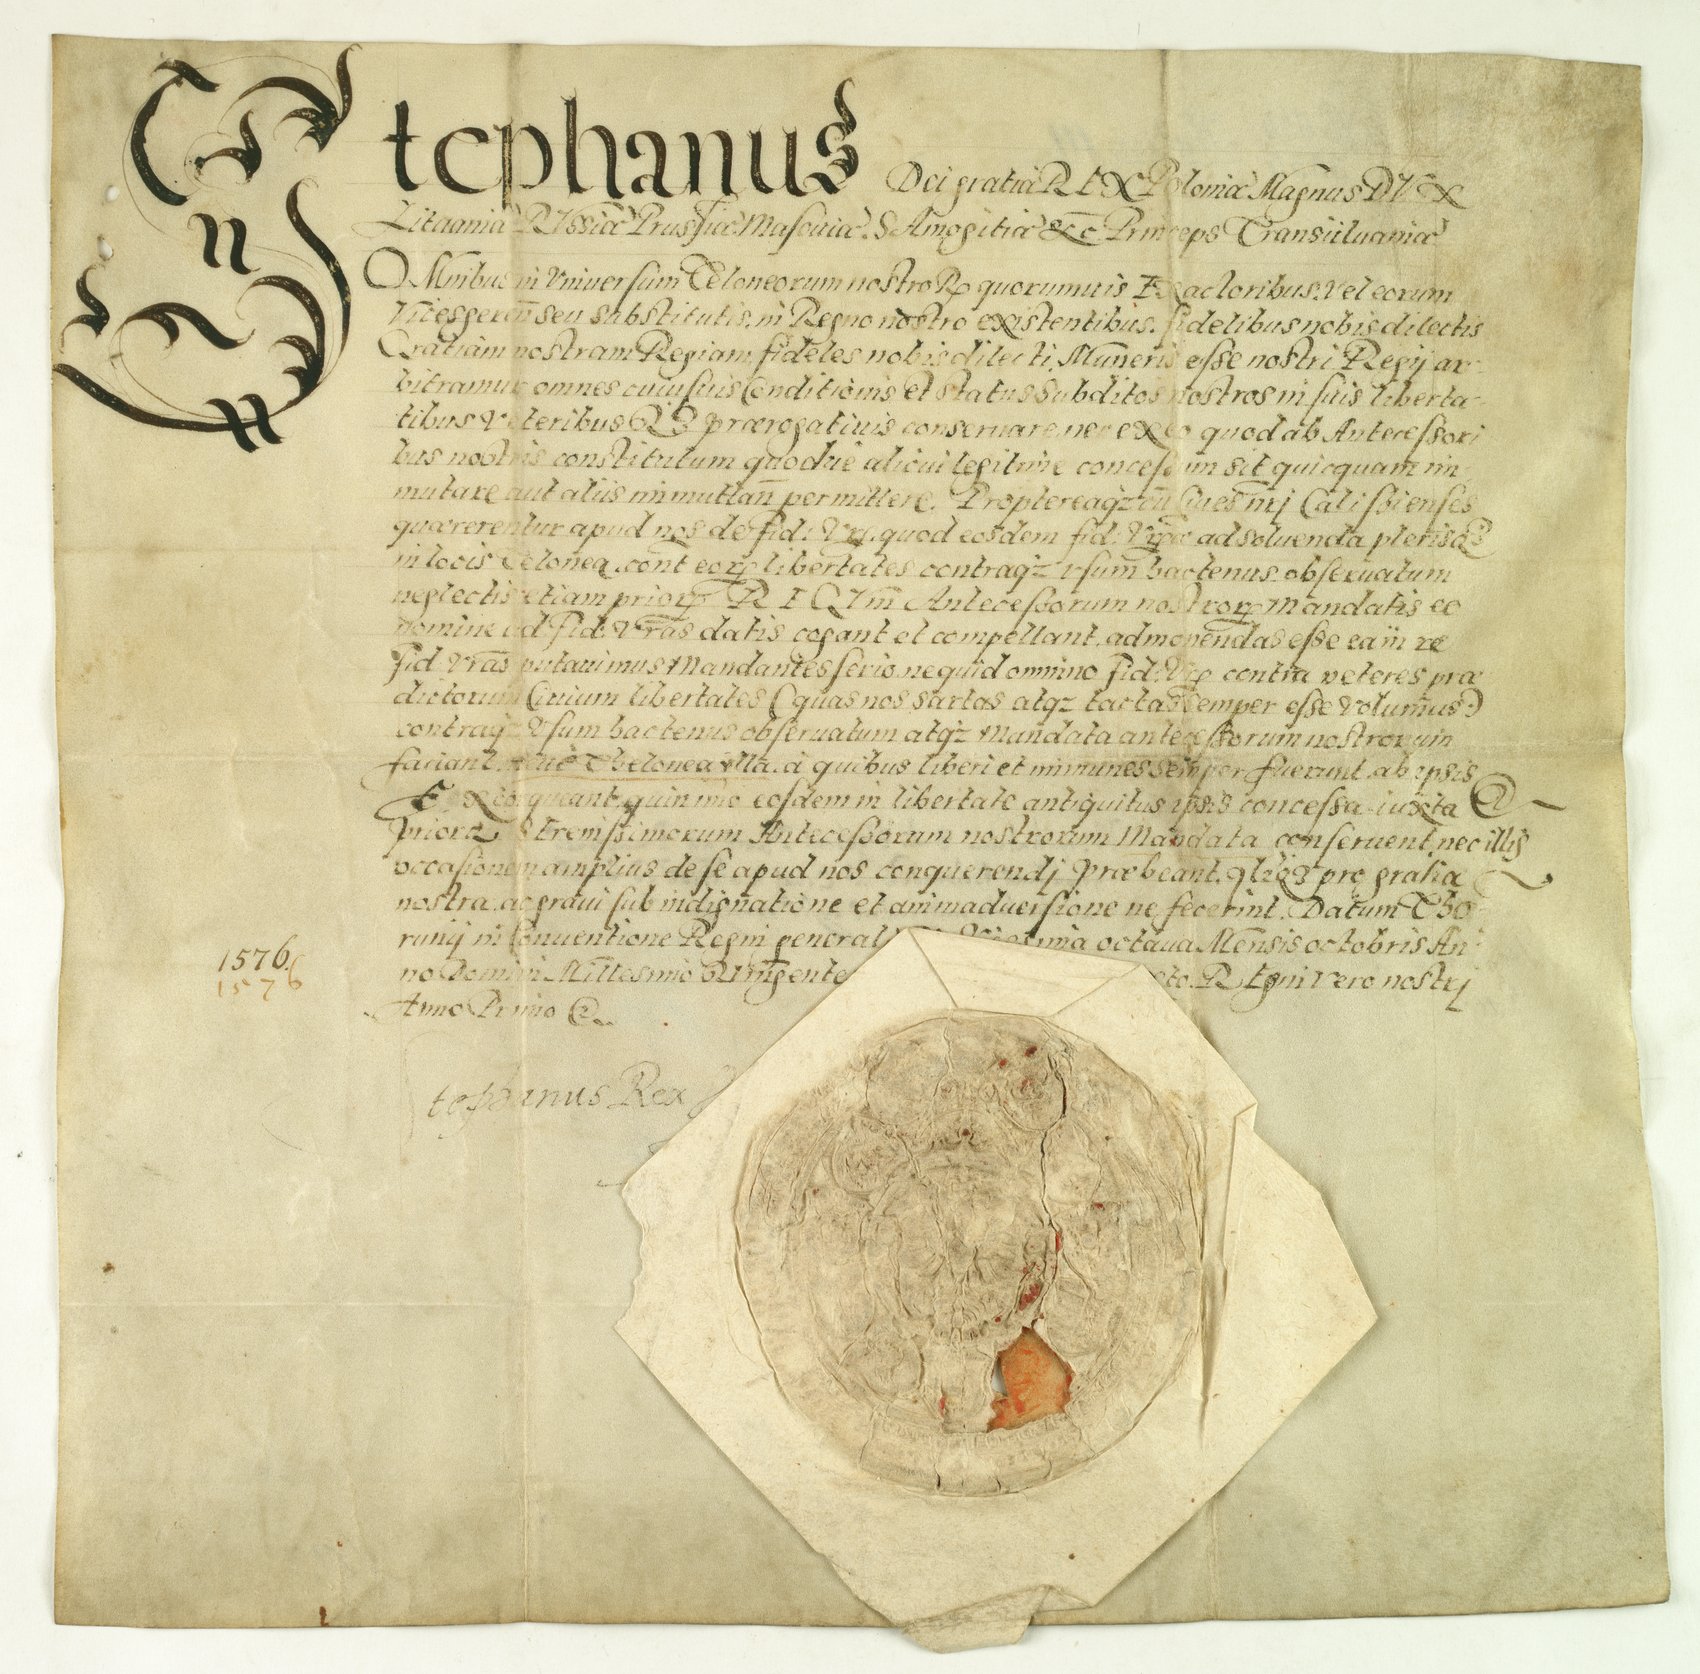 Stephanus Dei gratia REX Poloniæ Magnus DVX
Lituaniæ RVssiæ Prussiæ Masouiæ SAmogitiæ &c Princeps Transiluaniæ
OMnibus in Vniuersum Teloneorum nostroRū quorumuis EXactoribus, vel eorum
Vicesgeren̄ seu substitutis, in Regno nostro existentibus, fidelibus nobis dilectis
Gratiam nostram Regiam, fideles nobis dilecti, Muneris esse nostri Regij ar-
bitramur omnes cuiusuis Conditionis et status Subditos nostros in suis liberta-
tibus Veteribus QZ prærogatiuis conseruare, nec ex eo quod ab Antecessori
bus nostris constitutum quodue alicui legitime concessum sit quicquam im
mutare, aut aliis immutan̄ permittere. Proptereaqz cū Ciues n̄rj Calissienses
quærerentur apud nos de fid: Vr̄. quod eosdem fid: Vr̄æ ad soluenda plerisqz
in locis Telonea, cont eorū libertates contraqz vsum̄ hactenus obseruatum
neglectis etiam priorū REGVm̄ Antecessorum nostrorū Mandatis eo
nomine ad fid: Vr̄as datis cogant et compellant, admonendas esse ea in re
fid: Vr̄as putauimus Mandantes serio, ne quid omnino fid: Vr̄e contra veteres præ
dictorum Ciuium libertates (quas nos sartas atqz tactas Semper esse Volum̄us)
contraqz Vsum hactenus obseruatum atqz Mandata antecessorum nostrorum
faciant, Thelonea illa, à quibus liberi et immunes semper fuerunt ab ipsis
EXtorqueant, quin imo eosdem in libertate antiquitus ipsis concessa iuxta
priora SErenissimorum Antecessorum nostrorum Mandata conseruent, nec illis
occasionem amplius de se apud nos conquerendj Præbeant. pro gratia
nostra, ac graui sub indignatione et animaduersione ne fecerint. Datum Tho
runij in Conuentione Regni general Vigesima octaua Mensis octobris An
no Domini Millesimo QVingente cto. REgni Vero nostrj
Anno Primo
1576.
1576
Stephanus Rex